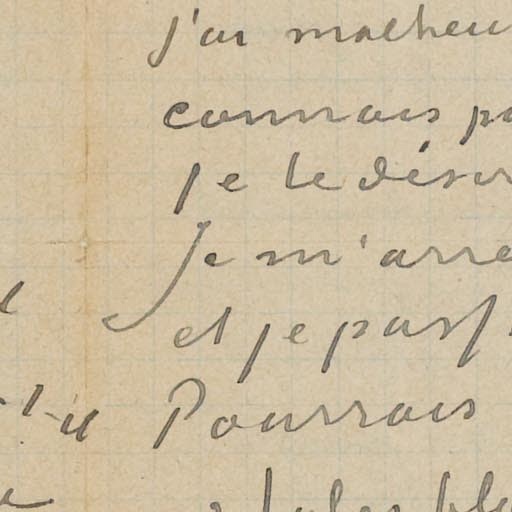 j'ai malheu
connais pa
je le désir
Je m'arre
et je pass
Pourrais